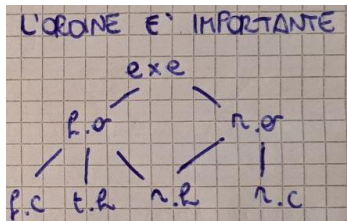 L'ORDINE E' IMPORTANTE
exe
f.o r.o
f.c t.h r.h r.c